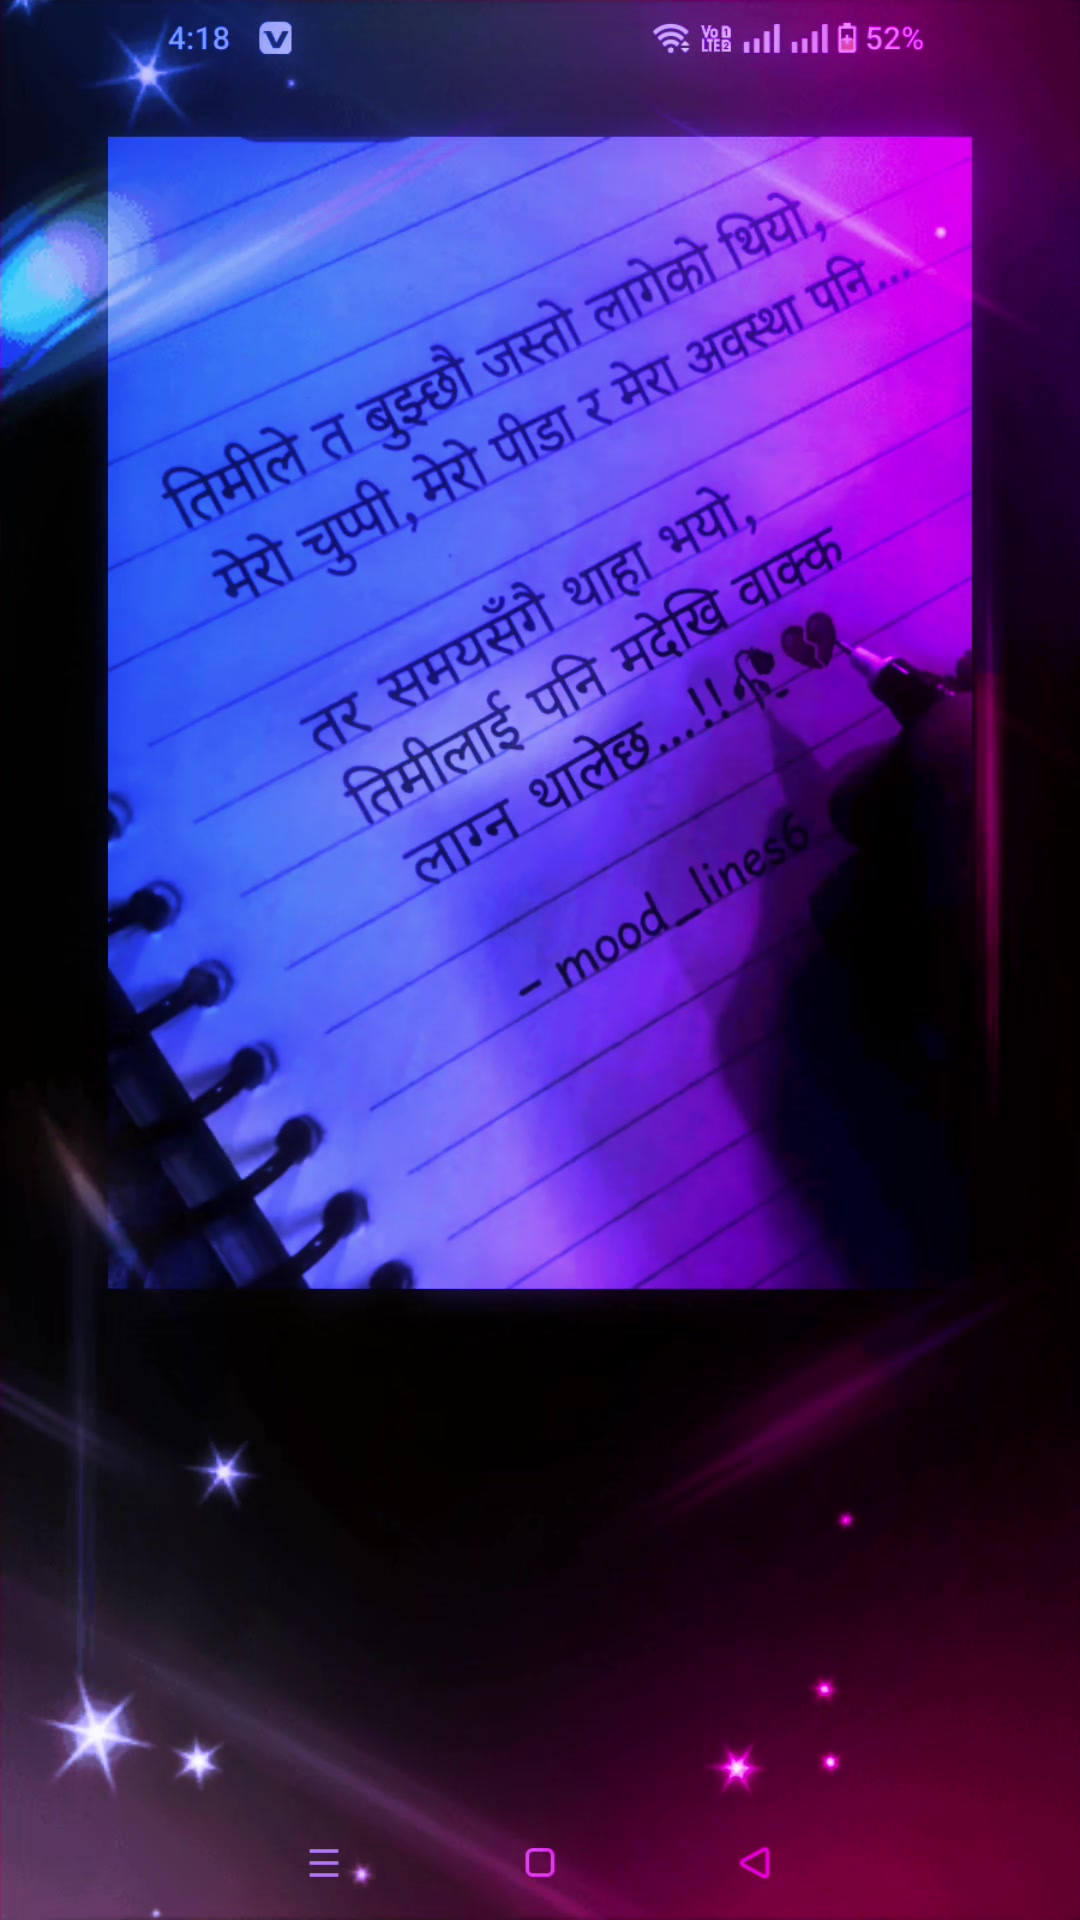 4:18
Vo 1 LTE 2 52%
तिमीले त बुझ्छौ जस्तो लागेको थियो,
मेरो चुप्पी, मेरो पीडा र मेरा अवस्था पनि...
तर समयसँगै थाहा भयो,
तिमीलाई पनि मदेखि वाक्क
लाग्न थालेछ...!!🥀💔
- mood_lines6